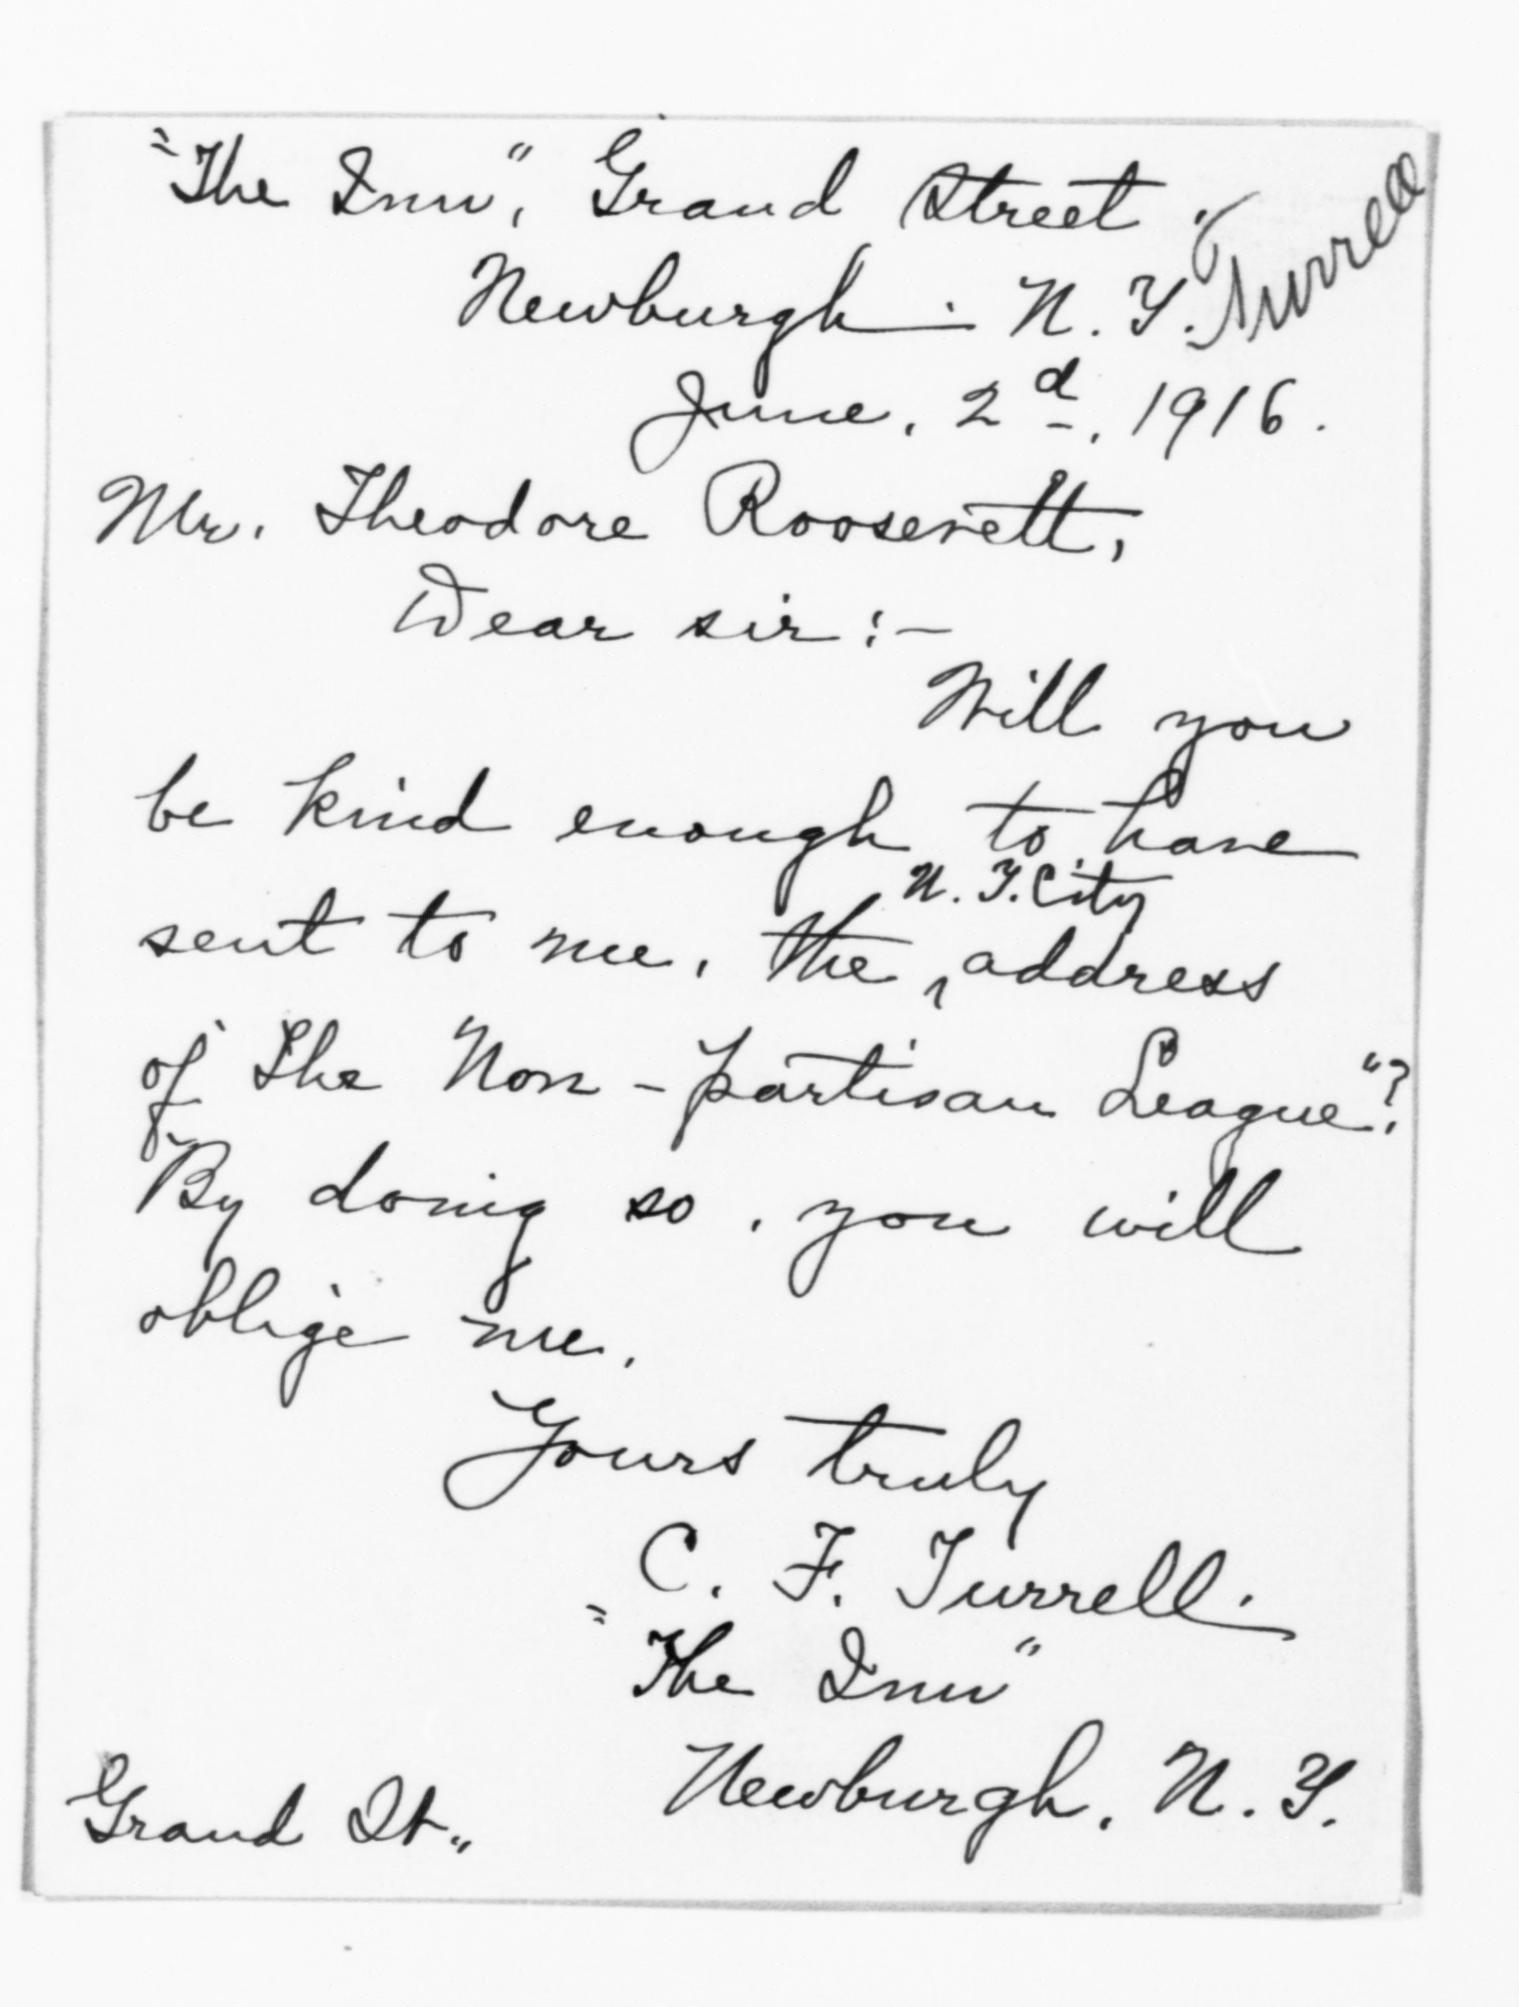 "The Inn", Grand Street.
Turrell
Newburgh - N. Y.
June, 2d, 1916.
Mr. Theodore Roosevelt,
Dear sir:-
Will you
be kind enough to have
N. Y. City
sent to me, the ‸ address
of the Non-partisan League"?
By doing so, you will
oblige me.
Yours truly
C. F. Turrell.
"The Inn"
Newburgh, N. Y.
Grand St.,